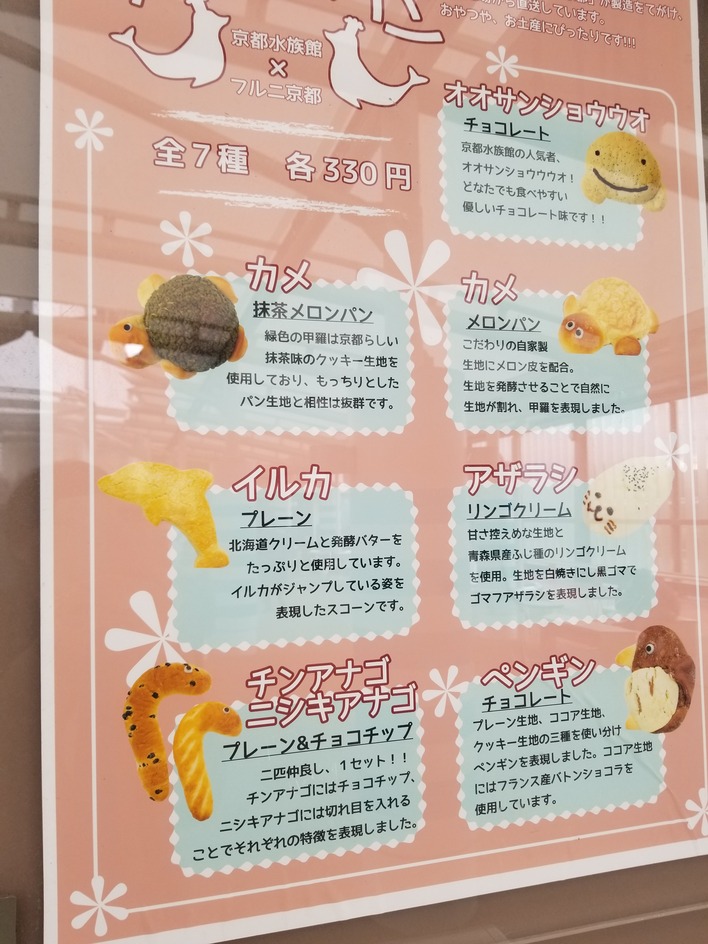 が製造をてがけ、
から直送しています。
おやつや、お土産にぴったりです!!!
京都水族館
×
フルニ京都
全7種 各330円
オオサンショウウオ
チョコレート
京都水族館の人気者、
オオサンショウウウオ！
どなたでも食べやすい
優しいチョコレート味です！！
カメ
抹茶メロンパン
緑色の甲羅は京都らしい
抹茶味のクッキー生地を
使用しており、もっちりとした
パン生地と相性は抜群です。
カメ
メロンパン
こだわりの自家製
生地にメロン皮を配合。
生地を発酵させることで自然に
生地が割れ、甲羅を表現しました。
イルカ
プレーン
北海道クリームと発酵バターを
たっぷりと使用しています。
イルカがジャンプしている姿を
表現したスコーンです。
アザラシ
リンゴクリーム
甘さ控えめな生地と
青森県産ふじ種のリンゴクリーム
を使用。生地を白焼きにし黒ゴマで
ゴマフアザラシを表現しました。
チンアナゴ
ニシキアナゴ
プレーン&チョコチップ
二匹仲良し、１セット！！
チンアナゴにはチョコチップ、
ニシキアナゴには切れ目を入れる
ことでそれぞれの特徴を表現しました。
ペンギン
チョコレート
プレーン生地、ココア生地、
クッキー生地の三種を使い分け
ペンギンを表現しました。ココア生地
にはフランス産バトンショコラを
使用しています。